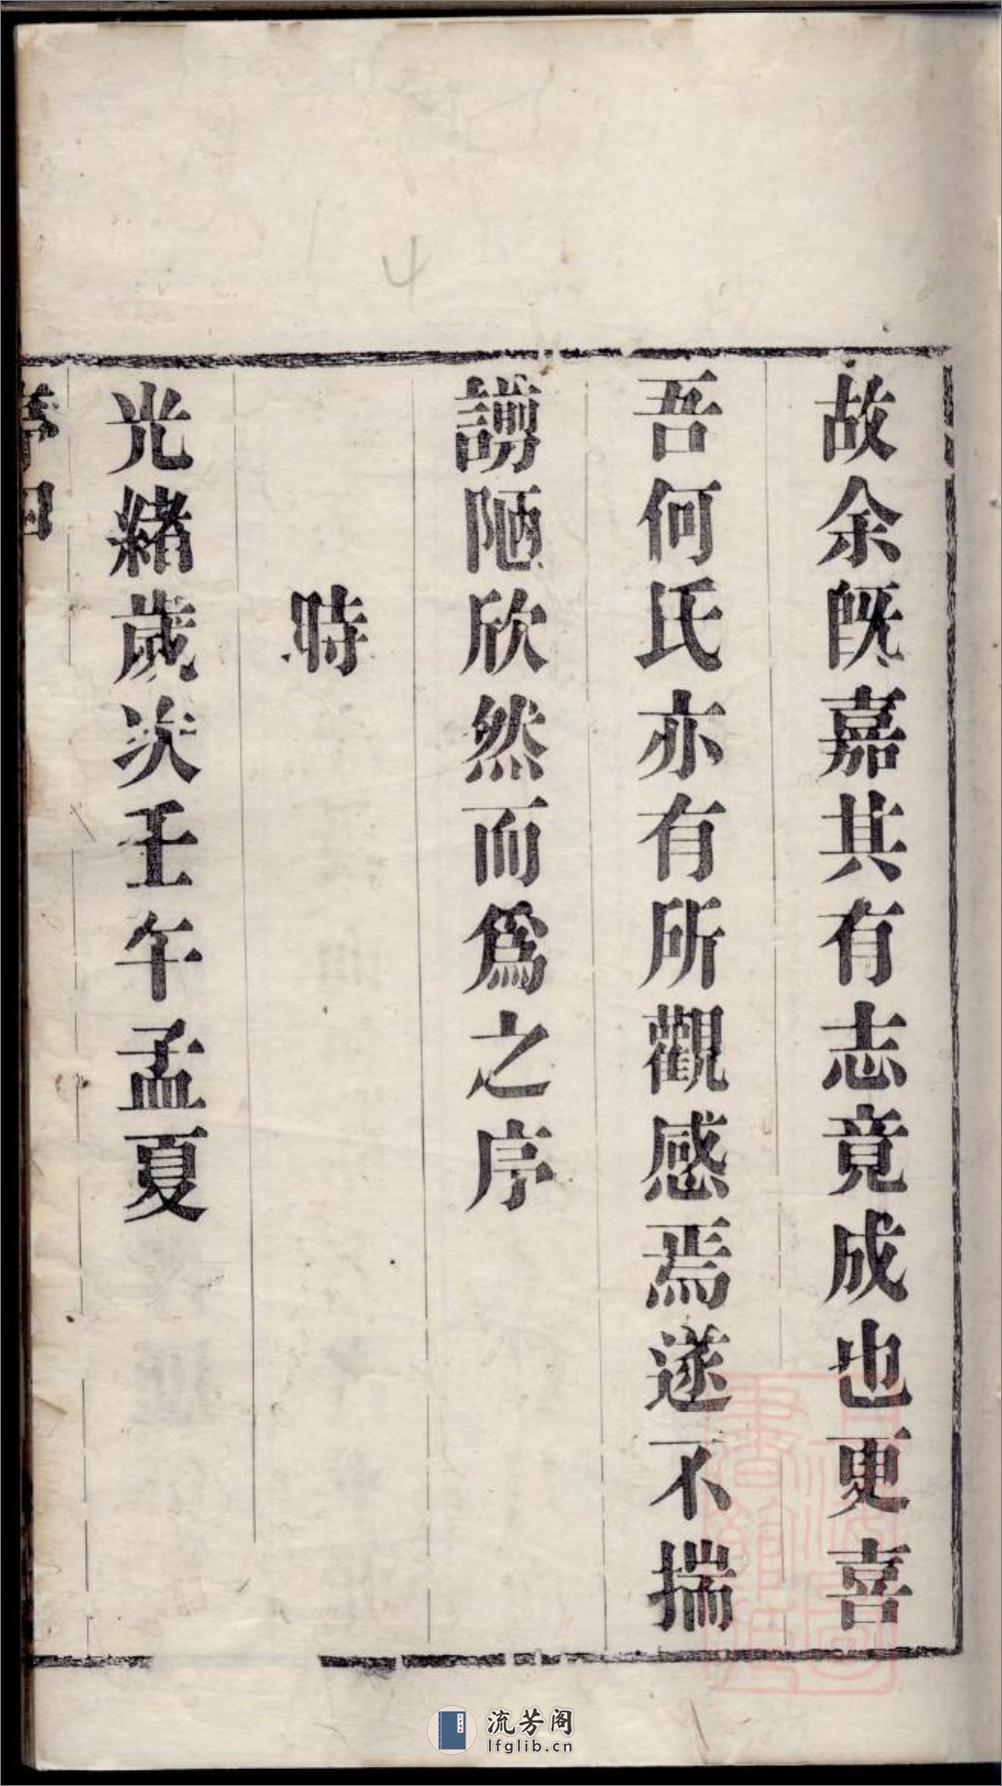 故余旣嘉其有志竟成也更喜
吾何氏亦有所觀感焉遂不揣
謭陋欣然而爲之序
時
光緒歲次壬午孟夏
流芳阁
lfglib.cn